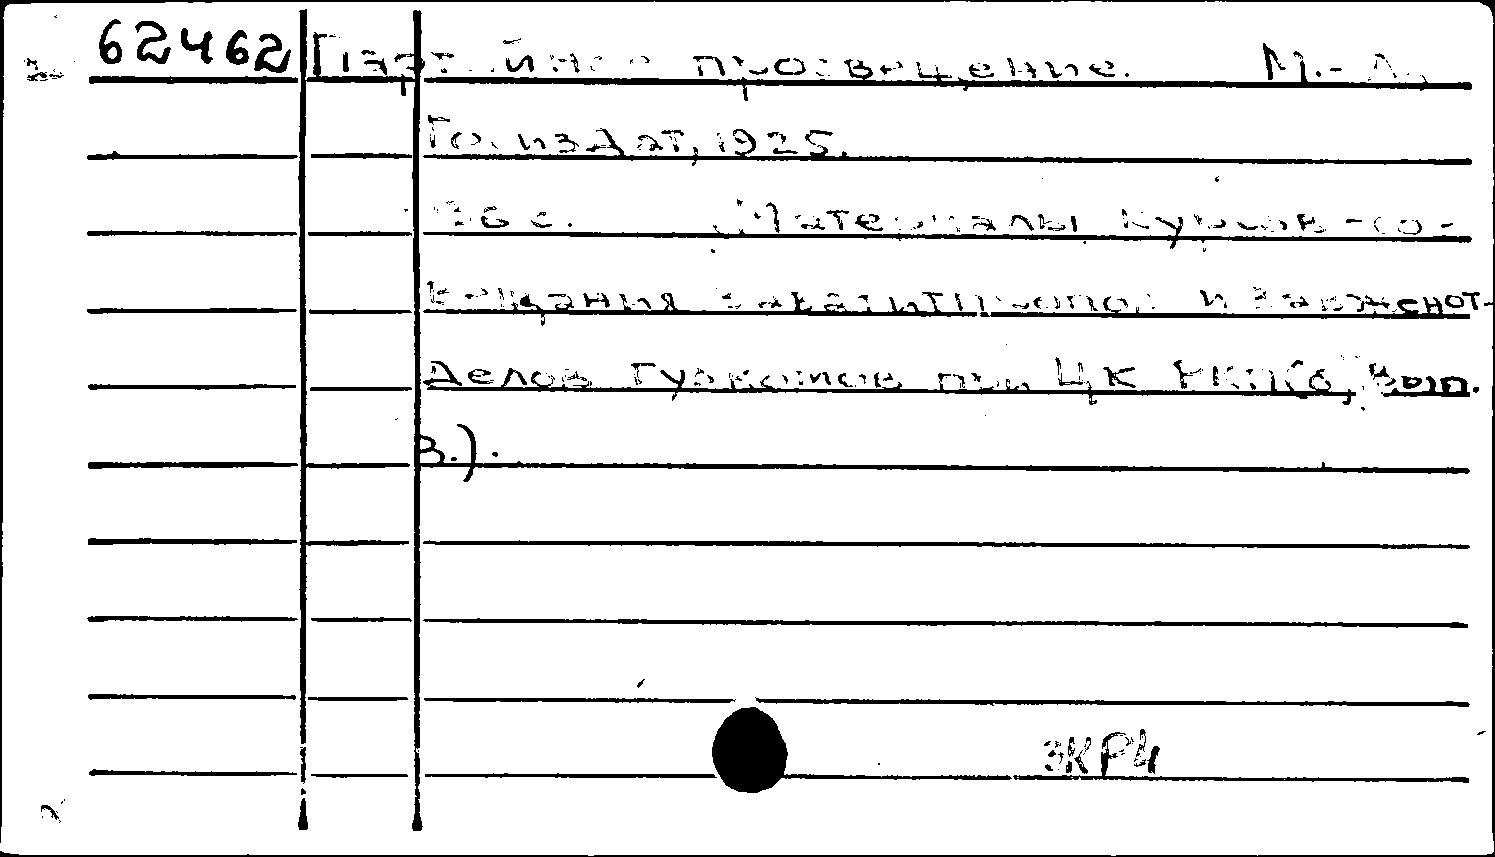 62462 Партийное просвещение. М.-Л.,
Госиздат, 1925.
36 с. (Материалы курсов-со-
вещания завагитпропов и завженот-
делов губкомов при ЦК РКП(б), Вып.
3.).
3КР4